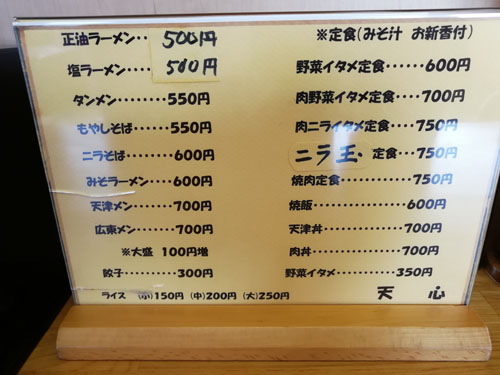 正油ラーメン‥ 500円
塩ラーメン‥‥ 500円
タンメン‥‥‥‥550円
もやしそば‥‥‥550円
ニラそば‥‥‥‥600円
みそラーメン‥‥600円
天津メン‥‥‥‥700円
広東メン‥‥‥‥700円
※大盛 100円増
餃子‥‥‥‥‥300円
ライス (小)150円 (中)200円 (大)250円
※定食(みそ汁 お新香付)
野菜イタメ定食‥‥‥600円
肉野菜イタメ定食‥‥700円
肉ニライタメ定食‥‥750円
ニラ玉 定食‥‥750円
焼肉定食‥‥‥‥‥‥750円
焼飯‥‥‥‥‥‥‥‥600円
天津丼‥‥‥‥‥‥‥700円
肉丼‥‥‥‥‥‥‥‥700円
野菜イタメ‥‥‥‥‥350円
天 心